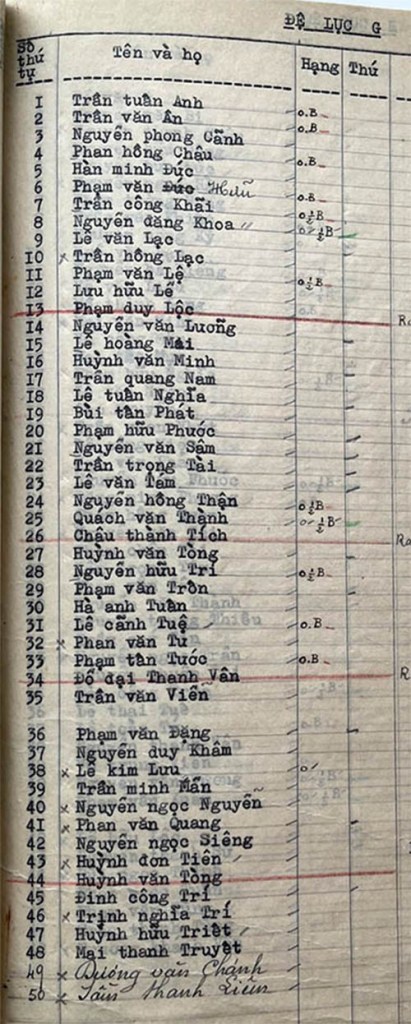 ĐỆ LỤC G
Số thứ tự Tên và họ Hạng Thứ
1 Trần tuấn Anh
2 Trần văn Ân o.B
3 Nguyễn phong Cảnh o.B
4 Phan hồng Châu
5 Hàn minh Đức o.B
6 Phạm văn Đức Hữu
7 Trần công Khải o.B
8 Nguyễn đăng Khoa o½B
9 Lê văn Lạc o½B
10 x Trần hồng Lạc
11 Phạm văn Lệ
12 Lưu hữu Lễ o½B
13 Phạm duy Lộc
14 Nguyễn văn Lương
15 Lê hoàng Mai
16 Huỳnh văn Minh
17 Trần quang Nam
18 Lê tuấn Nghĩa
19 Bùi tấn Phát
20 Phạm hữu Phước
21 Nguyễn văn Sậm
22 Trần trọng Tài
23 Lê văn Tám
24 Nguyễn hồng Thận o½B
25 Quách văn Thành o½B
26 Châu thành Tích
27 Huỳnh văn Tòng
28 Nguyễn hữu Trí o½B
29 Phạm văn Tròn
30 Hà anh Tuấn
31 Lê cảnh Tuệ o.B
32 x Phan văn Tư
33 Phạm tấn Tước o.B
34 Đổ đại Thanh Vân
35 Trần văn Viễn
36 Phạm văn Đặng
37 Nguyễn duy Khâm
38 x Lê kim Lưu
39 Trần minh Mẫn
40 x Nguyễn ngọc Nguyễn
41 x Phan văn Quang
42 Nguyễn ngọc Siêng
43 x Huỳnh đơn Tiên
44 Huỳnh văn Tòng
45 Đinh công Trí
46 x Trịnh nghĩa Trí
47 Huỳnh hữu Triết
48 Mai thanh Truyệt
49 x Dương văn Chánh
50 x thanh Liêm